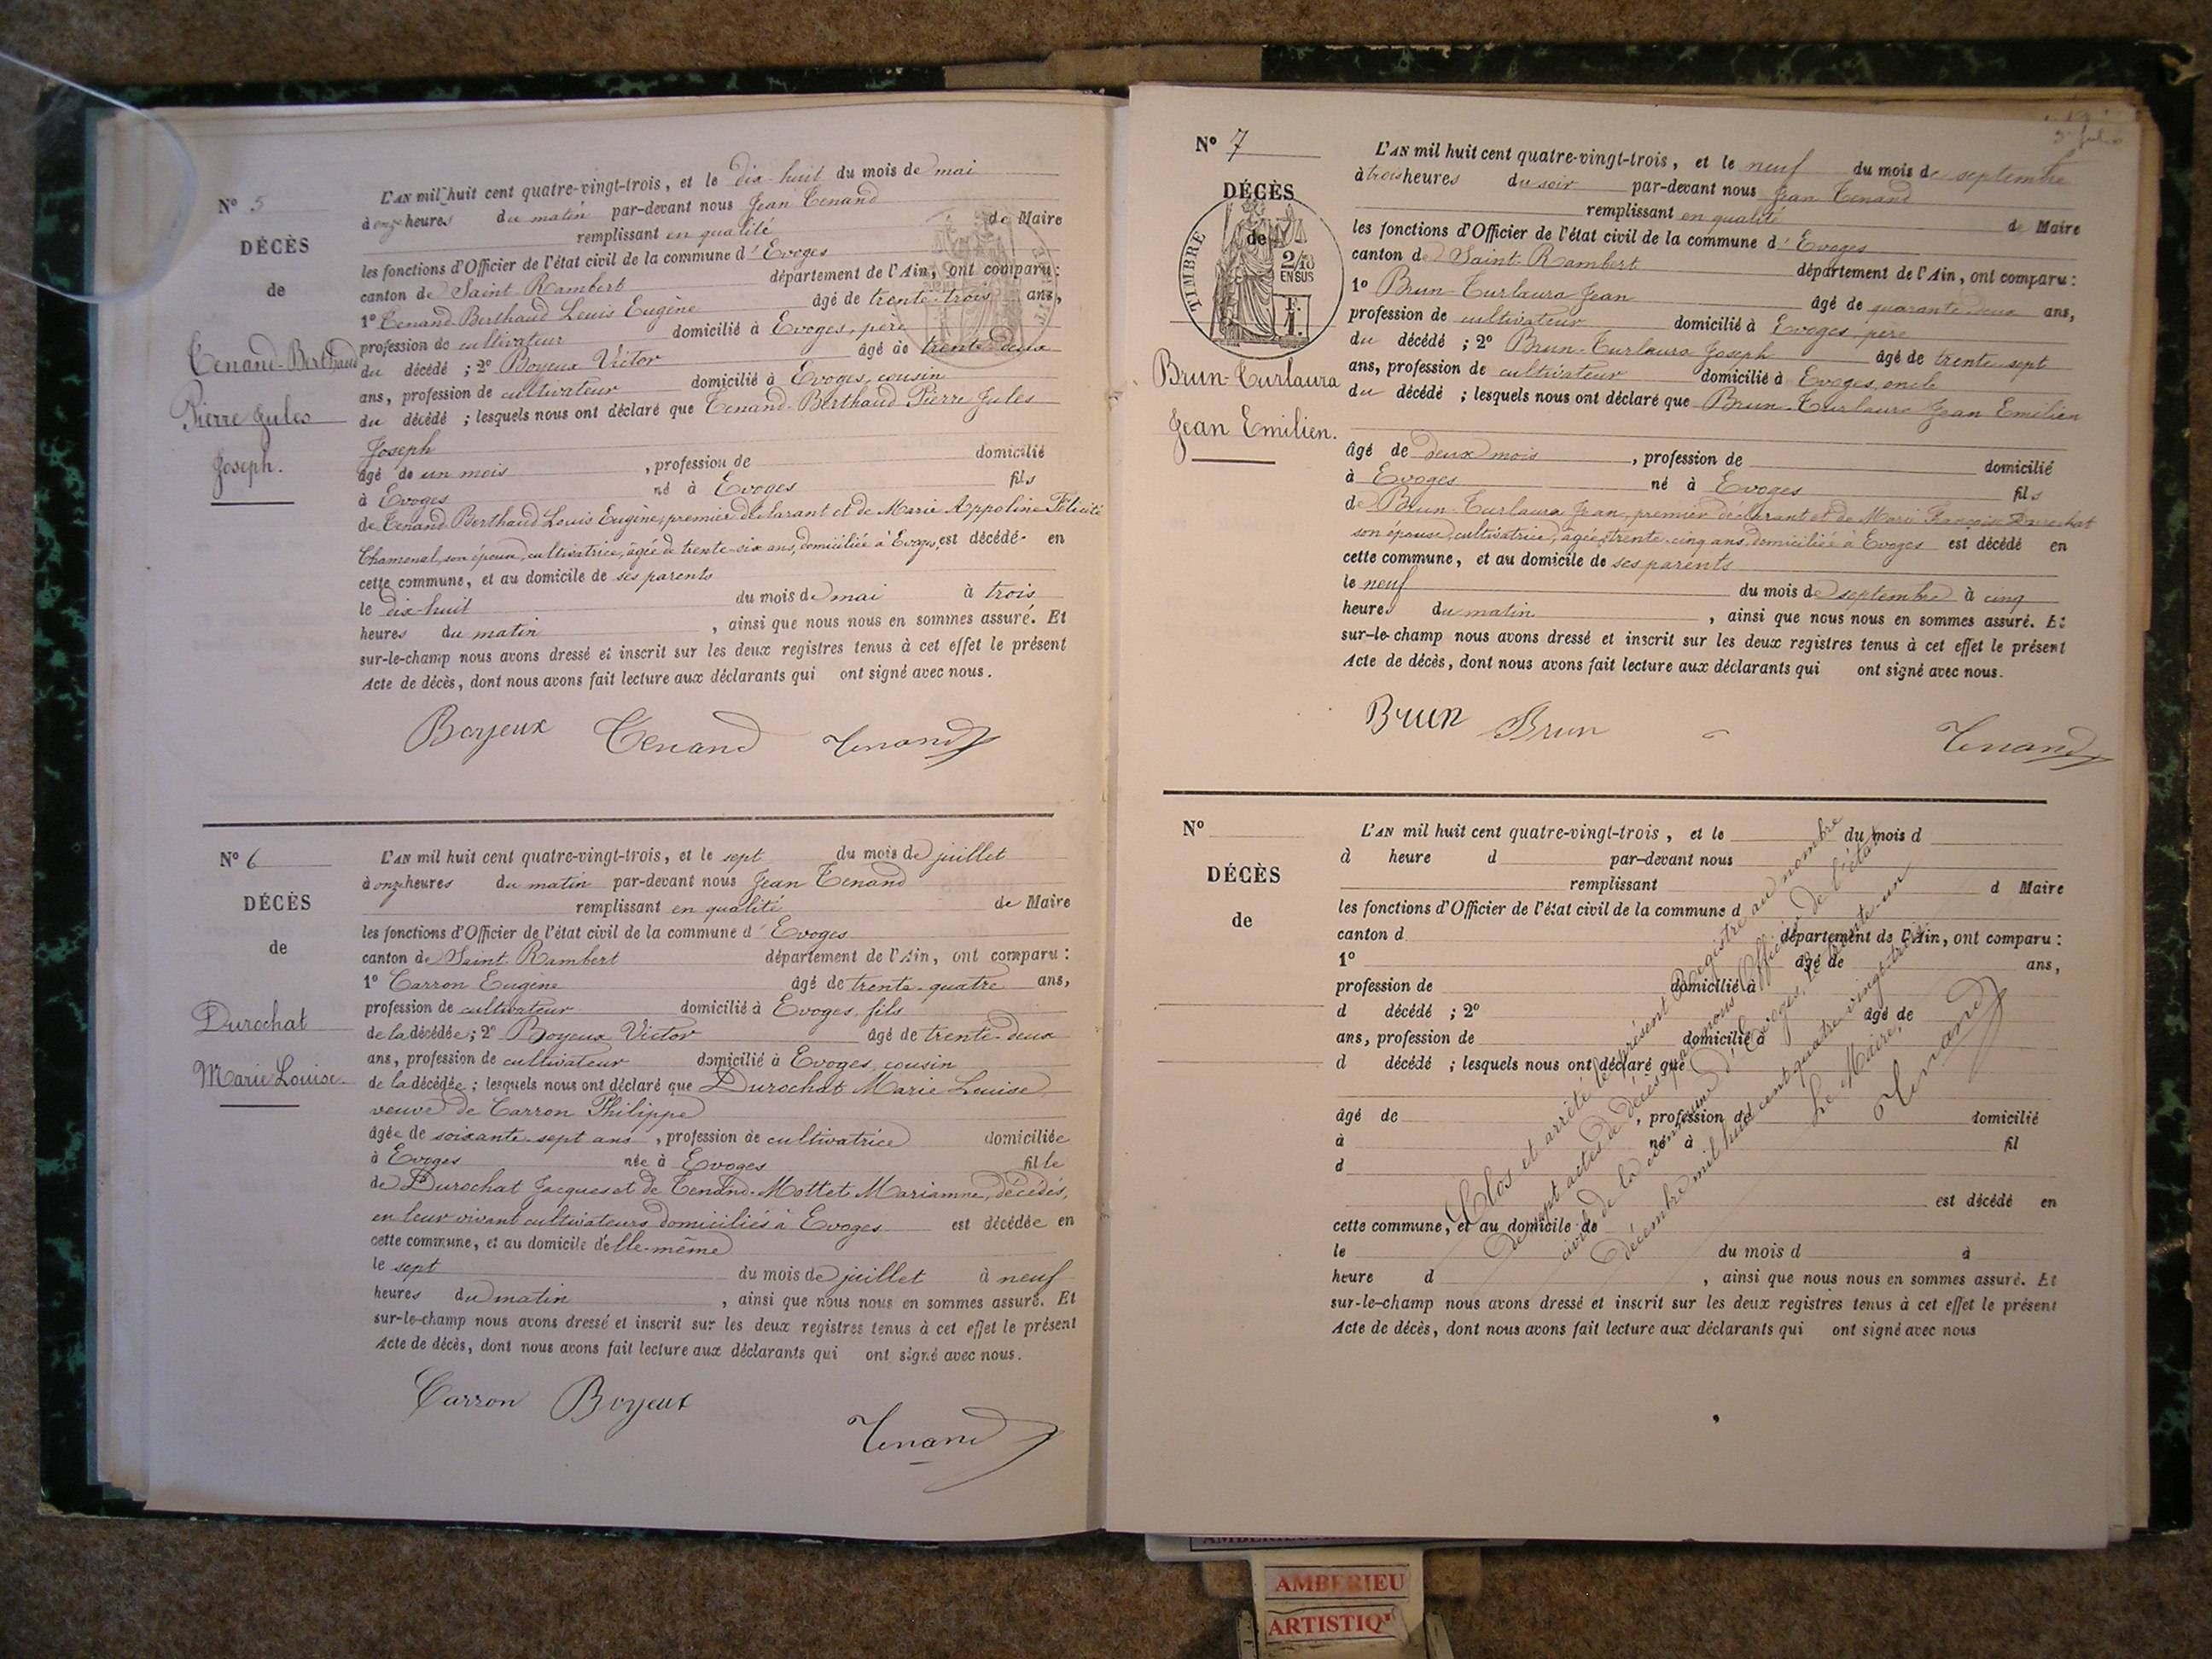 N° 5
DÉCÈS
de
Tenand-Berthaud
Pierre Jules
Joseph.
L'AN mil huit cent quatre-vingt-trois, et le dix-huit du mois de mai
à onze heures du matin par-devant nous Jean Tenand
remplissant en qualité de Maire
les fonctions d'Officier de l'état civil de la commune d'Evoges
canton de Saint-Rambert département de l'Ain, ont comparu :
1° Tenand-Berthaud Louis Eugène âgé de trente-trois ans,
profession de cultivateur domicilié à Evoges, père
du décédé ; 2° Boyeux Victor âgé de trente-deux
ans, profession de cultivateur domicilié à Evoges, cousin
du décédé ; lesquels nous ont déclaré que Tenand-Berthaud Pierre Jules
Joseph
âgé de un mois , profession de domicilié
à Evoges né à Evoges fils
de Tenand-Berthaud Louis Eugène, premier déclarant et de Marie Appoline Félicité
Chamenal, son épouse, cultivatrice, âgée de trente-six ans, domiciliée à Evoges, est décédé en
cette commune, et au domicile de ses parents
le dix-huit du mois de mai à trois
heures du matin , ainsi que nous nous en sommes assuré. Et
sur-le-champ nous avons dressé et inscrit sur les deux registres tenus à cet effet le présent
Acte de décès, dont nous avons fait lecture aux déclarants qui ont signé avec nous.
Boyeux Tenand Tenand
N° 6
DÉCÈS
de
Durochat
Marie Louise.
L'AN mil huit cent quatre-vingt-trois, et le sept du mois de juillet
à onze heures du matin par-devant nous Jean Tenand
remplissant en qualité de Maire
les fonctions d'Officier de l'état civil de la commune d'Evoges
canton de Saint-Rambert département de l'Ain, ont comparu :
1° Carron Eugène âgé de trente-quatre ans,
profession de cultivateur domicilié à Evoges, fils
de la décédée ; 2° Boyeux Victor âgé de trente-deux
ans, profession de cultivateur domicilié à Evoges, cousin
de la décédée ; lesquels nous ont déclaré que Durochat Marie Louise
veuve de Carron Philippe
âgée de soixante-sept ans , profession de cultivatrice domiciliée
à Evoges née à Evoges fille
de Durochat Jacques et de Tenand-Mottet Marianne, décédés,
en leur vivant cultivateurs domiciliés à Evoges est décédée en
cette commune, et au domicile d'elle-même
le sept du mois de juillet à neuf
heures du matin , ainsi que nous nous en sommes assuré. Et
sur-le-champ nous avons dressé et inscrit sur les deux registres tenus à cet effet le présent
Acte de décès, dont nous avons fait lecture aux déclarants qui ont signé avec nous.
Carron Boyeux
Tenand
N° 7
DÉCÈS
de
TIMBRE
2/10
EN SUS
Brun-Turlaura
Jean Emilien.
L'AN mil huit cent quatre-vingt-trois, et le neuf du mois de septembre
à trois heures du soir par-devant nous Jean Tenand
remplissant en qualité de Maire
les fonctions d'Officier de l'état civil de la commune d'Evoges
canton de Saint-Rambert département de l'Ain, ont comparu :
1° Brun-Turlaura Jean âgé de quarante-deux ans,
profession de cultivateur domicilié à Evoges, père
du décédé ; 2° Brun-Turlaura Joseph âgé de trente-sept
ans, profession de cultivateur domicilié à Evoges, oncle
du décédé ; lesquels nous ont déclaré que Brun-Turlaura Jean Emilien
âgé de deux mois , profession de domicilié
à Evoges né à Evoges fils
de Brun-Turlaura Jean, premier déclarant et de Marie Françoise Durochat
son épouse, cultivatrice, âgée trente-cinq ans, domiciliée à Evoges est décédé en
cette commune, et au domicile de ses parents
le neuf du mois de septembre à cinq
heures du matin , ainsi que nous nous en sommes assuré. Et
sur-le-champ nous avons dressé et inscrit sur les deux registres tenus à cet effet le présent
Acte de décès, dont nous avons fait lecture aux déclarants qui ont signé avec nous.
Brun Brun Tenand
N°
DÉCÈS
de
L'AN mil huit cent quatre-vingt-trois, et le du mois d
à heure d par-devant nous
remplissant d Maire
les fonctions d'Officier de l'état civil de la commune d
canton d département de l'Ain, ont comparu :
1° âgé de ans,
profession de domicilié à
d décédé ; 2° âgé de
ans, profession de domicilié à
d décédé ; lesquels nous ont déclaré que
âgé de , profession de domicilié
à né à fil
d
est décédé en
cette commune, et au domicile de
le du mois d à
heure d , ainsi que nous nous en sommes assuré. Et
sur-le-champ nous avons dressé et inscrit sur les deux registres tenus à cet effet le présent
Acte de décès, dont nous avons fait lecture aux déclarants qui ont signé avec nous
Clos et arrêté le présent Registre au nombre
de sept actes de décès par nous Officier de l'état
civil de la commune d'Evoges, le trente-un
décembre mil huit cent quatre-vingt-trois.
Le Maire,
Tenand
AMBERIEU
ARTISTIQ